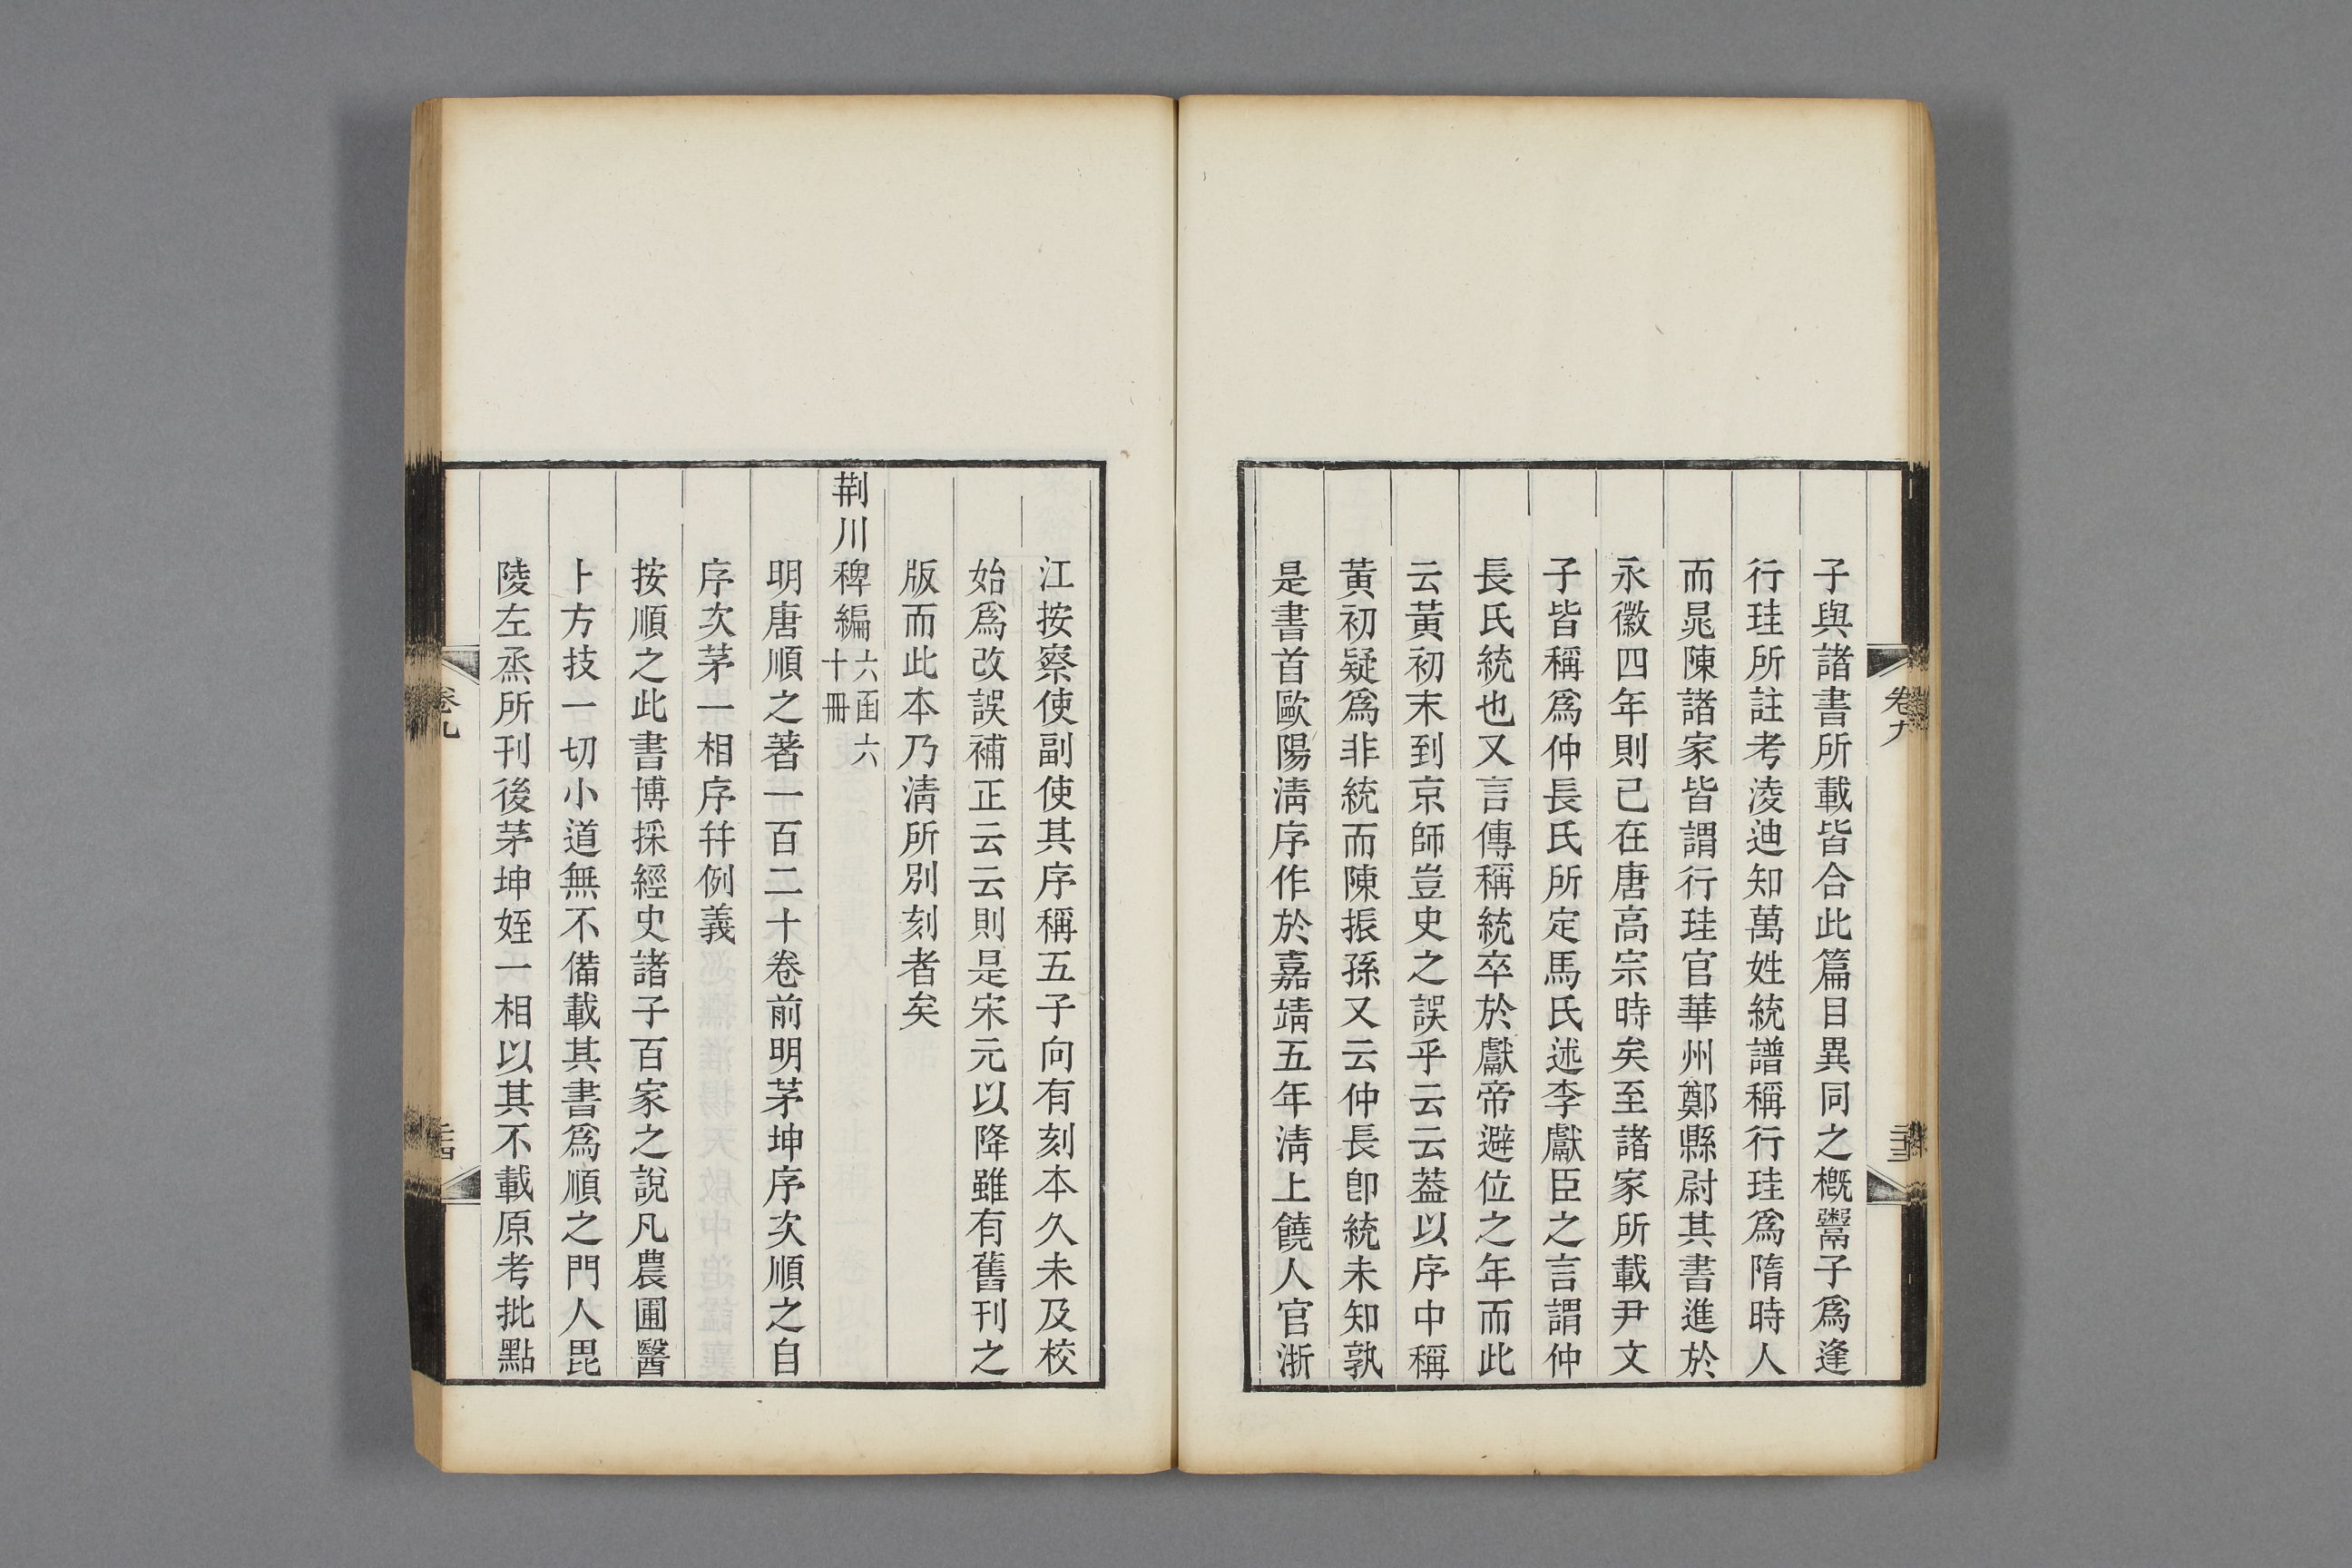 子與諸書所載皆合此篇目異同之槪鬻子爲逢
行珪所註考淩迪知萬姓統譜稱行珪爲隋時人
而晁陳諸家皆謂行珪官華州鄭縣尉其書進於
永徽四年則已在唐高宗時矣至諸家所載尹文
子皆稱爲仲長氏所定馬氏述李獻臣之言謂仲
長氏統也又言傳稱統卒於獻帝避位之年而此
云黃初末到京師豈史之誤乎云云葢以序中稱
黃初疑爲非統而陳振孫又云仲長卽統未知孰
是書首歐陽淸序作於嘉靖五年淸上饒人官浙
卷九
二十三
江按察使副使其序稱五子向有刻本久未及校
始爲改誤補正云云則是宋元以降雖有舊刊之
版而此本乃淸所別刻者矣
荆川稗編六函六十冊
明唐順之著一百二十卷前明茅坤序次順之自
序次茅一相序幷例義
按順之此書博採經史諸子百家之說凡農圃醫
卜方技一切小道無不備載其書爲順之門人毘
陵左烝所刊後茅坤姪一相以其不載原考批點
卷九
二十四